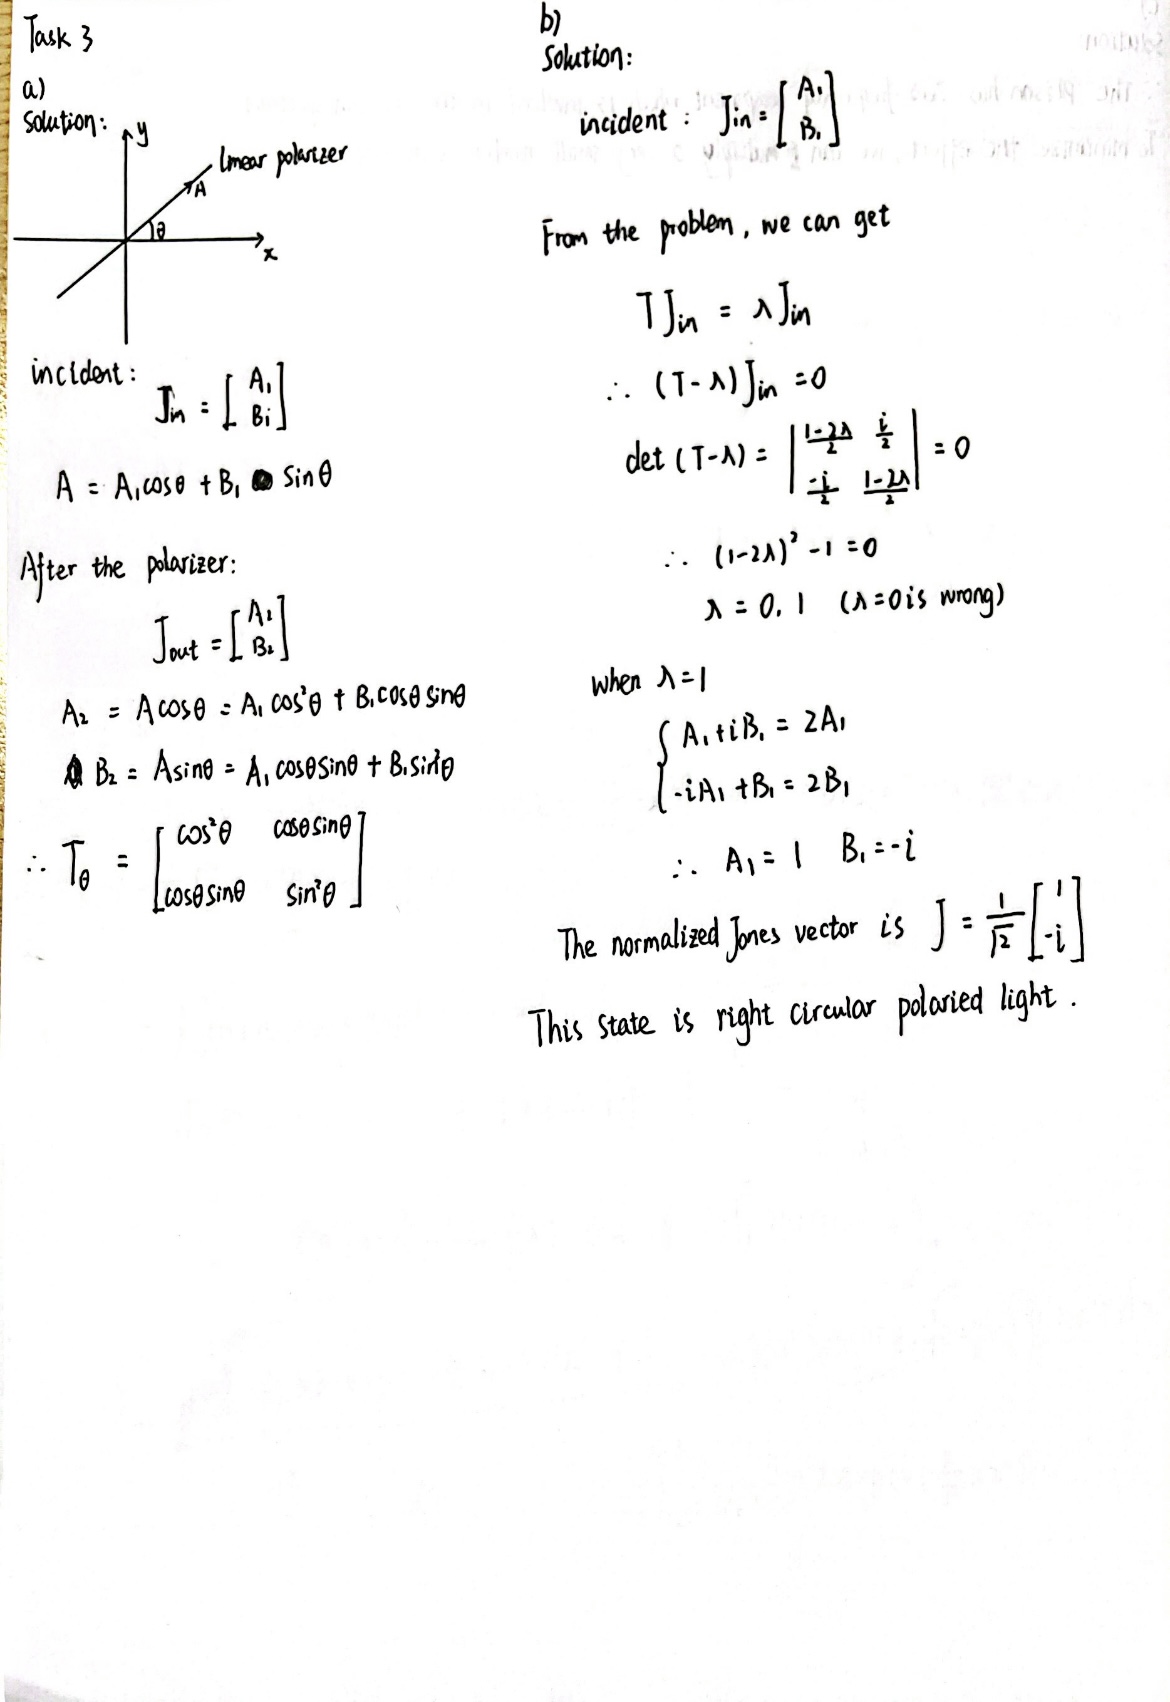 Task 3
a)
Solution:
y
linear polarizer
A
θ
x
incident:
Jin = [A₁ B₁]
A = A₁cosθ + B₁ sinθ
After the polarizer:
Jout = [A₂ B₂]
A₂ = Acosθ = A₁cos²θ + B₁cosθsinθ
B₂ = Asinθ = A₁cosθsinθ + B₁sin²θ
∴ Tθ = [cos²θ cosθsinθ
cosθsinθ sin²θ]
b)
Solution:
incident: Jin = [A₁ B₁]
From the problem, we can get
TJin = λJin
∴ (T-λ)Jin = 0
det(T-λ) = | (1-2λ)/2 i/2
-i/2 (1-2λ)/2 | = 0
∴ (1-2λ)² - 1 = 0
λ = 0, 1 (λ=0 is wrong)
when λ=1
{ A₁+iB₁ = 2A₁
-iA₁+B₁ = 2B₁
∴ A₁ = 1 B₁ = -i
The normalized Jones vector is J = 1/√2 [1 -i]
This state is right circular polaried light.